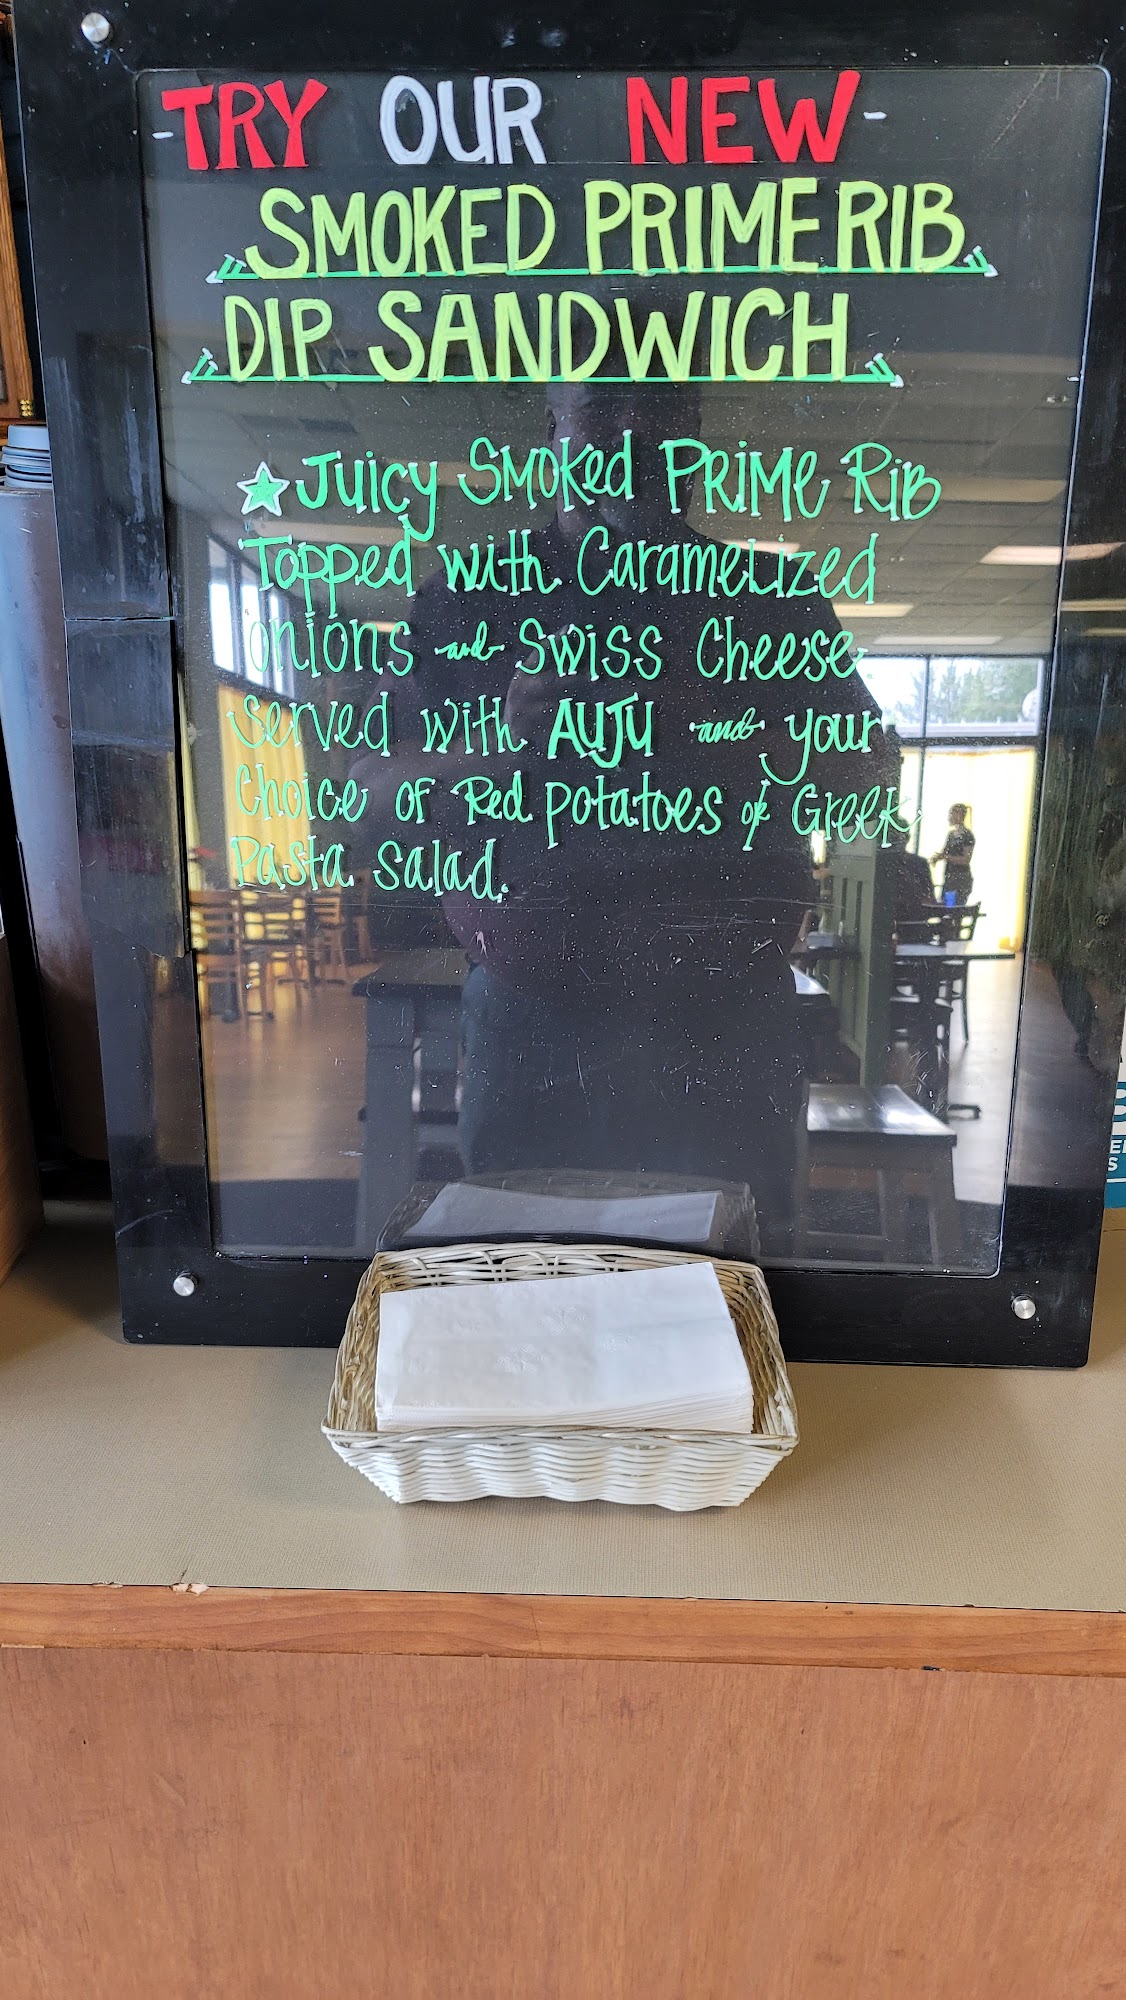 -TRY OUR NEW-
SMOKED PRIME RIB
DIP SANDWICH
Juicy Smoked Prime Rib
Topped with Caramelized
onions and Swiss Cheese
served with AUJU and your
Choice of Red potatoes or Greek
Pasta Salad.